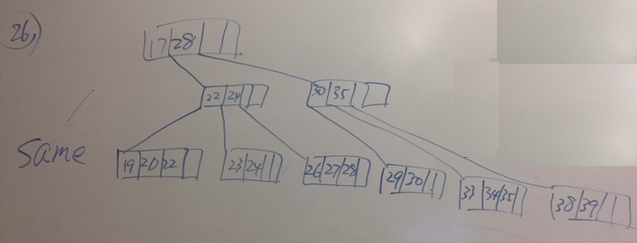 26)
17 28
22 24 30 35
same
19 20 22 23 24 26 27 28 29 30 33 34 35 38 39